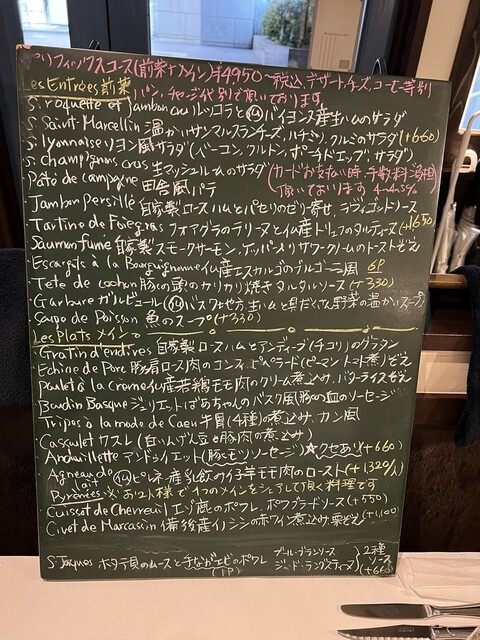 プリフィックスコース(前菜+メイン)¥4950〜税込、デザート、チーズ、コーヒー等別
Les Entrées 前菜 パン、チャージ代 別で頂いております
S. roquette et Jambon cru ルッコラと⑭バイヨンヌ産生ハムのサラダ
S. Saint-Marcellin 温かサンマルスランチーズ、ハチミツ、クルミのサラダ(+660)
S. lyonnaise リヨン風サラダ(ベーコン、クルトン、ポーチドエッグ、サラダ)
S. champignons crus 生マッシュルームのサラダ (カードお支払い時、手数料ご負担
Pâté de campagne 田舎風パテ 頂いております 4〜4.5%)
Jambon persillé 自家製ロースハムとパセリのゼリー寄せ、ラヴィゴットソース
Tartine de Foie gras フォアグラのテリーヌと仏産トリュフのタルティーヌ(+1650)
Saumon fumé 自家製スモークサーモン、ケッパーとサワークリームのトーストぞえ
Escargots à la Bourguignonne 仏産エスカルゴのブルゴーニュ風 6P
Tête de cochon 豚の頭のカリカリ焼き タルタルソース(+330)
Garbure ガルビュール⑭バスク地方生ハムと具だくさん野菜の温かいスープ
Soupe de Poisson 魚のスープ(+330)
Les Plats メイン
Gratin d'endives 自家製ロースハムとアンディーブ(チコリ)のグラタン
Échine de Porc 豚肩ロース肉のコンフィ、ピペラード(ピーマントマト煮)ぞえ
Poulet à la crème 仏産若鶏モモ肉のクリーム煮込み、バターライスぞえ
Boudin Basque ジュリエットばあちゃんのバスク風豚の血のソーセージ
Tripes à la mode de Caen 牛胃(4種)の煮込み、カン風
Cassoulet カスレ(白いんげん豆と豚肉の煮込み)
Andouillette アンドゥイエット(豚モツソーセージ)☆クセあり(+660)
Agneau de lait Pyrénées ⑭ピレネー産乳飲み仔羊モモ肉のロースト(+1320/人)
※お2人様で1つのメインをシェアして頂く料理です
Cuissot de Chevreuil エゾ鹿のポワレ、ポワヴラードソース(+550)
Civet de Marcassin 備後産イノシシの赤ワイン煮込み、栗ぞえ(+1100)
S. Jacques ホタテ貝のムースと手長エビのポワレ (1P) ブール・ブランソース
ジュ・ド・ラングスティーヌ
2種ソース(+660)